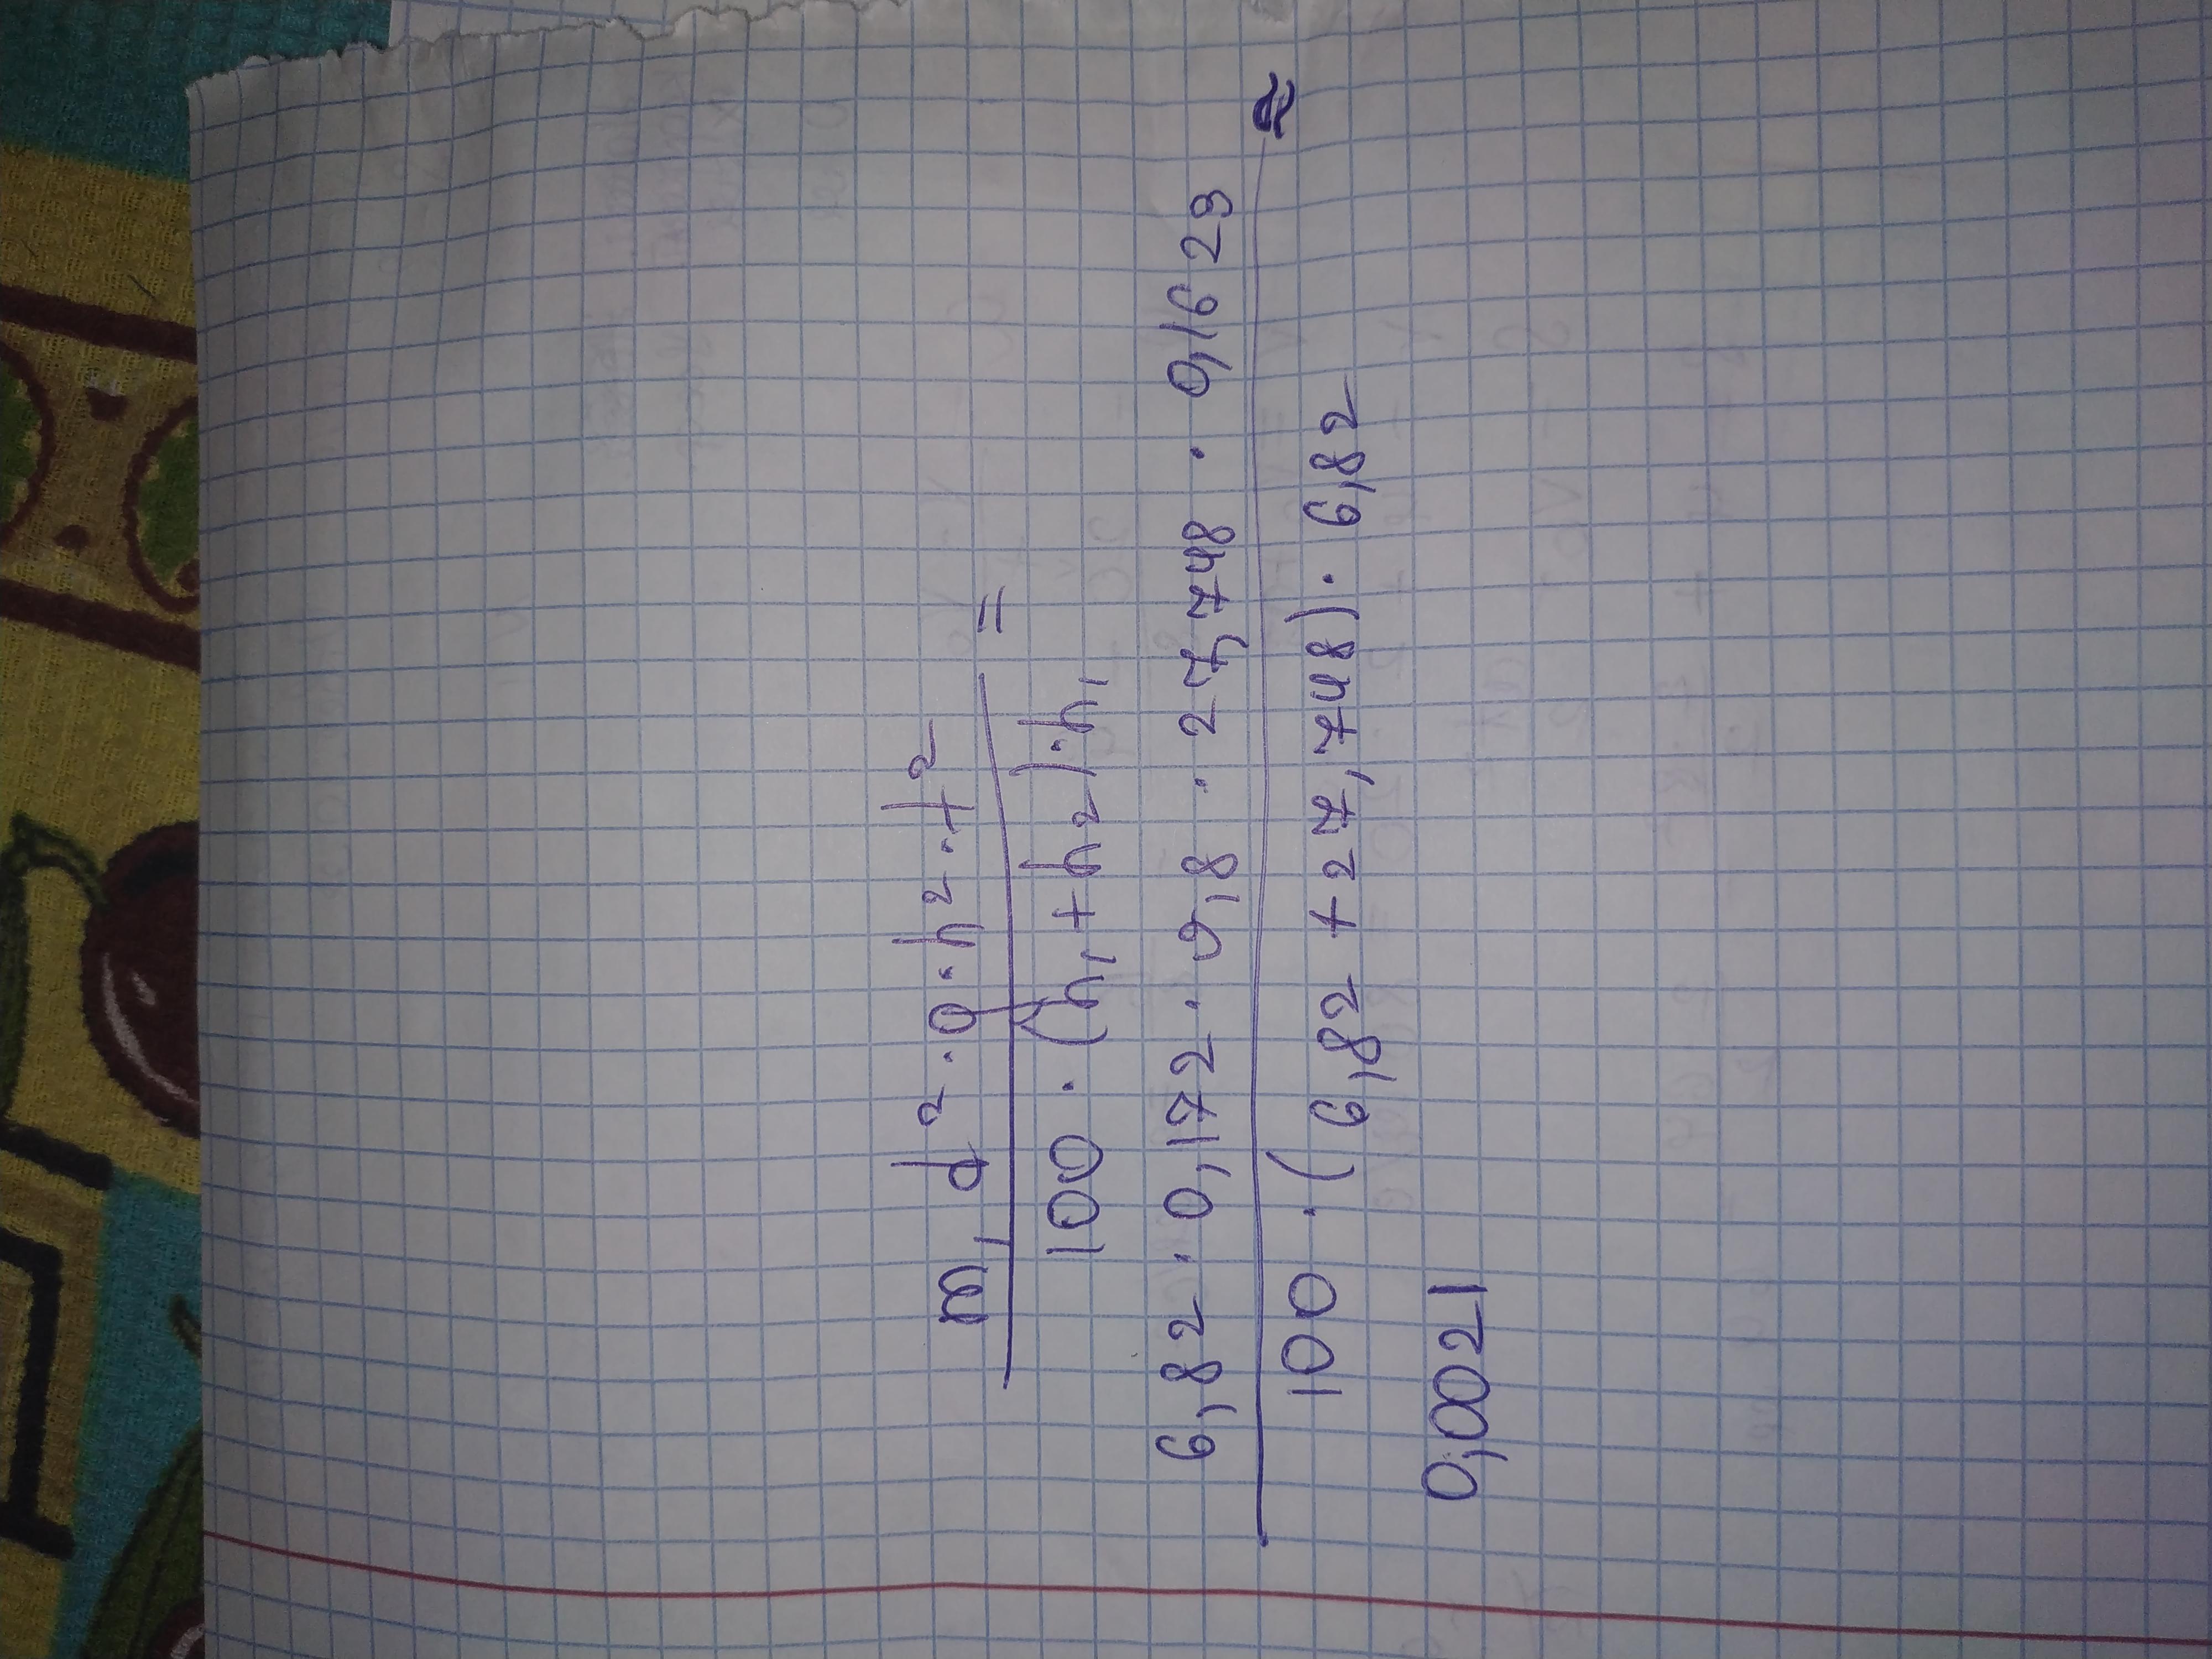 m₁ d² · g · h² · t² =
100 · (h₁ + h₂) · h₁
6,82 · 0,172 · 9,8 · 27,748 · 0,1629 ≈
100 · (6,82 + 27,748) · 6,82
0,0021